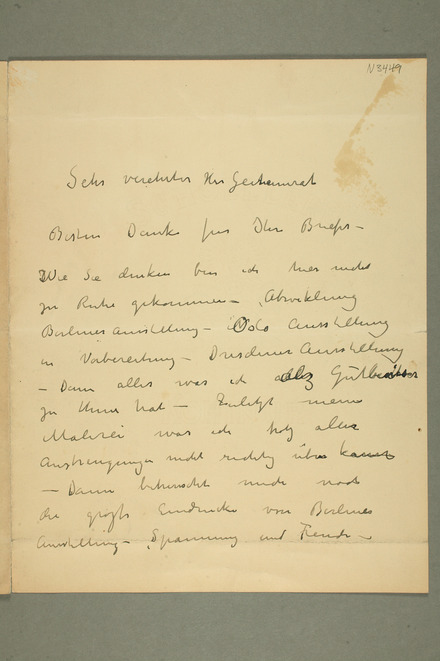 N3449
Sehr verehrter Herr Geheimrat
Besten Danke für Ihre Briefe –
Wie Sie denken bin ich hier nicht
zu Ruhe gekommen – Abwicklung
Berliner Ausstellung – Oslo Ausstellung
in Vorbereitung – Dresdener Ausstellung
– Dann alles was ich als Gutbesitzer
zu thun hat – Zuletzt meine
Malerei was ich trotz aller
Anstrengungen nicht richtig
– Dann beherrscht mich noch
die große Eindrücke von Berliner
Ausstellung – Spannung und Freude –